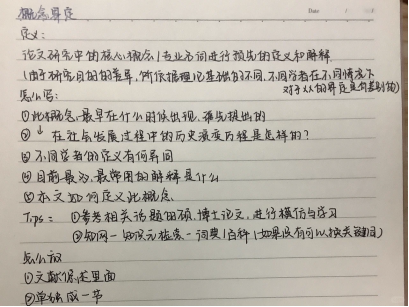 概念界定
Date
定义:
论文研究中的核心概念/专业名词进行预先的定义和解释.
(由于研究目的的差异,所依据理论基础的不同,不同学者在不同情境下
对于从的界定是有差别的)
怎么写:
①此概念最早在什么时候出现,谁先提出的
② ↓ 在社会发展过程中的历史演变历程是怎样的?
③ 不同学者的定义有何异同
④目前最多、最常用的解释是什么
⑤本文如何定义此概念.
Tips: ①参考相关话题的硕、博士论文,进行模仿与学习
②知网-知识元检索-词典/百科(如果没有可以换关键词)
怎么放
①文献综述里面
②单独成一节